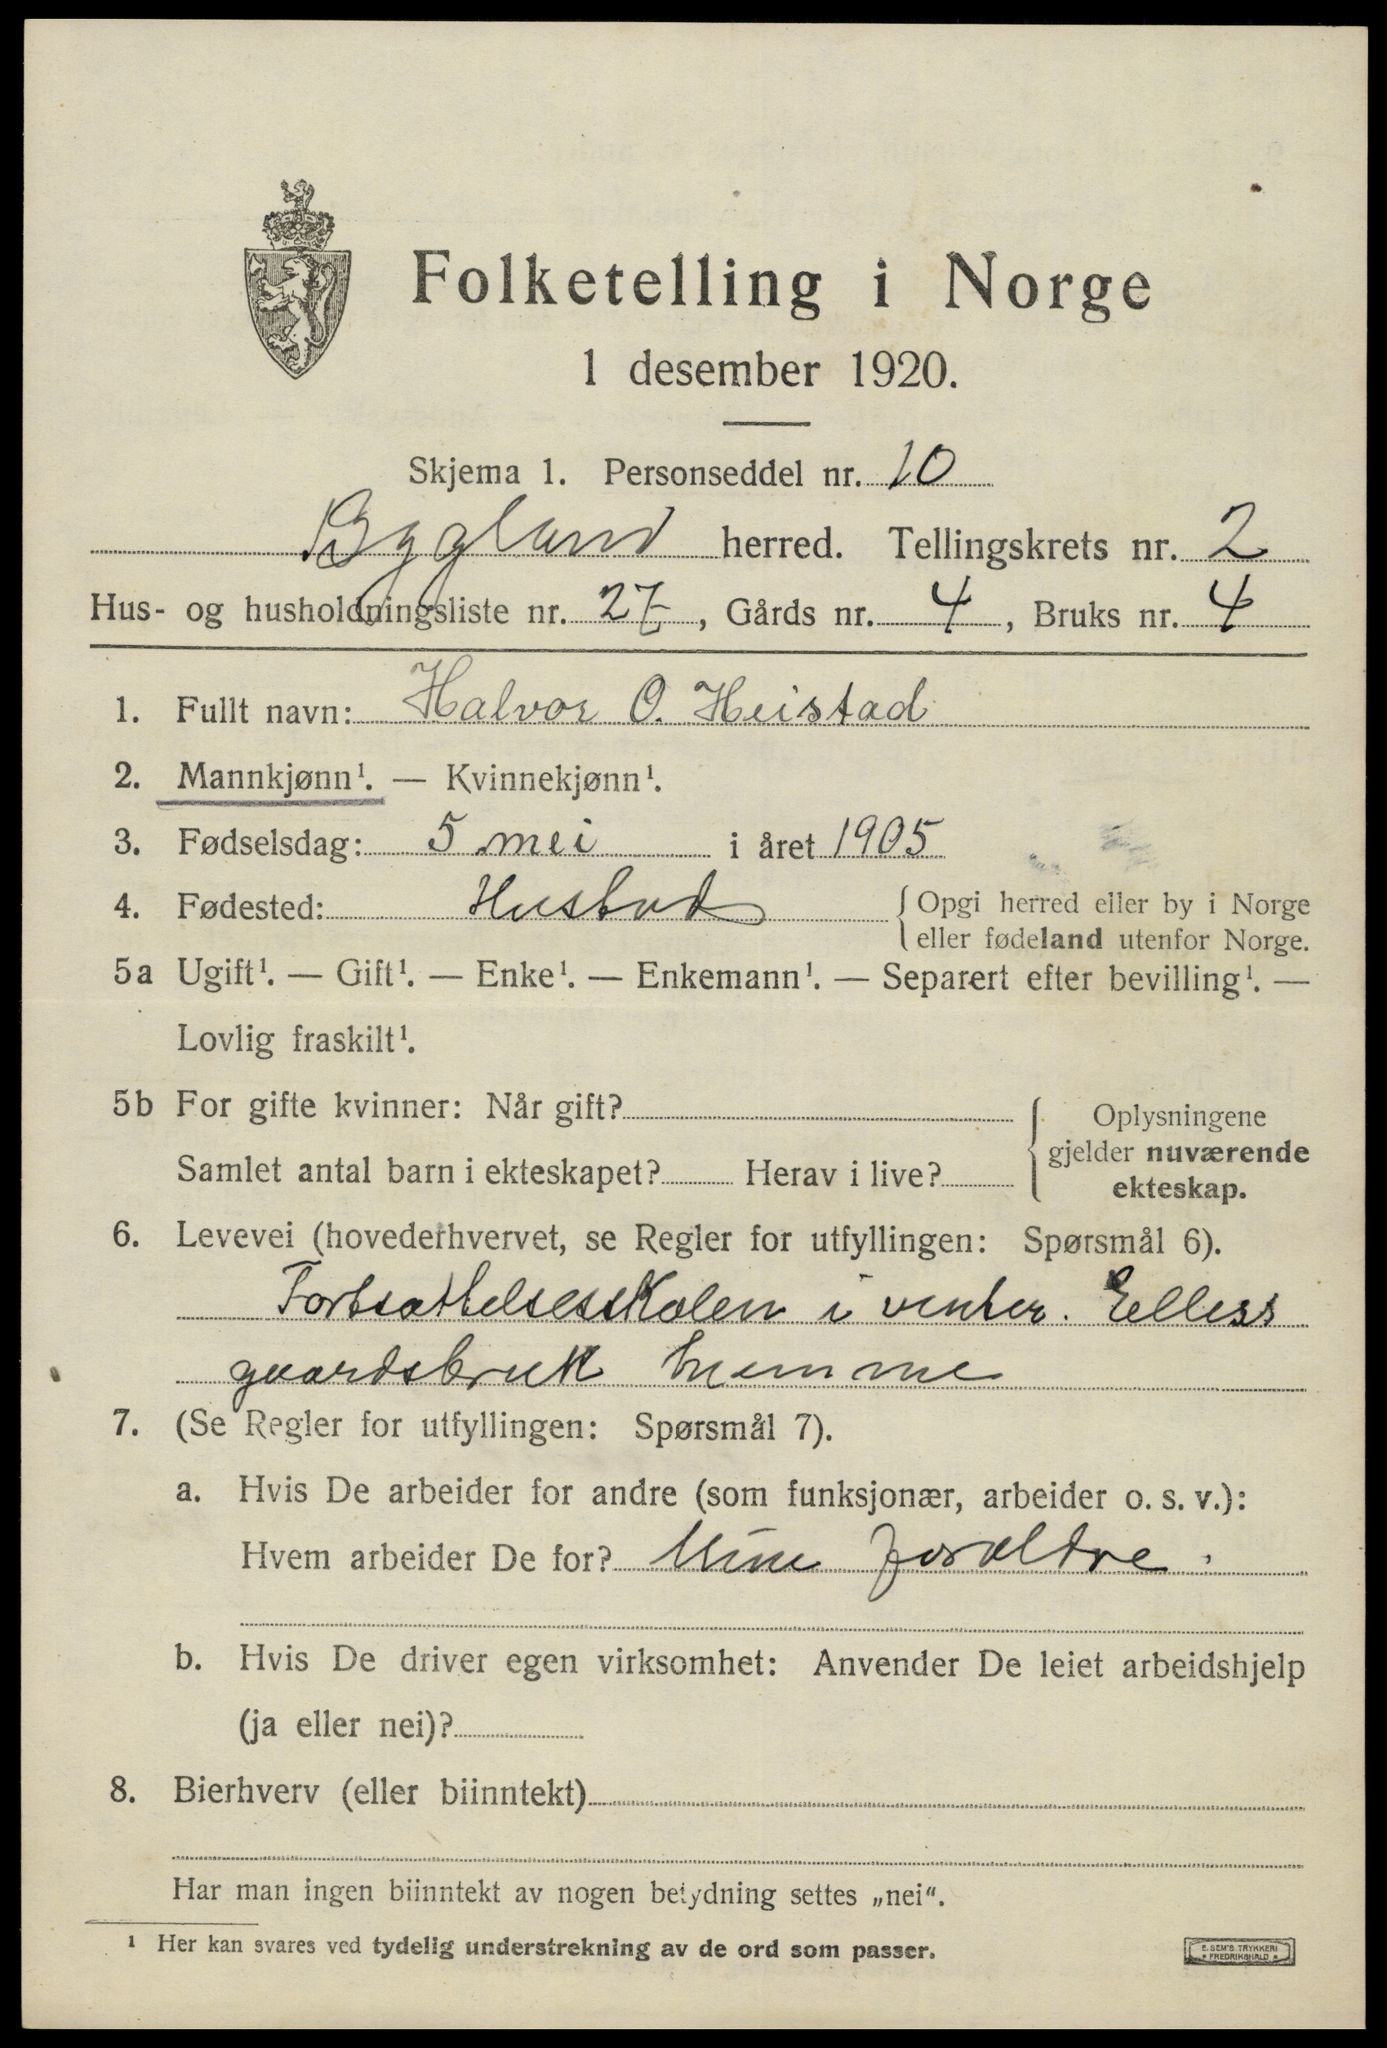 Folketelling i Norge
1 desember 1920.
Skjema 1. Personseddel nr. 10
Bygland herred. Tellingskrets nr. 2
Hus- og husholdningsliste nr. 27, Gårds nr. 4, Bruks nr. 4
1. Fullt navn: Halvor O. Heistad
2. Mannkjønn¹. — Kvinnekjønn¹.
3. Fødselsdag: 5 mei i året 1905
4. Fødested: { Opgi herred eller by i Norge
eller fødeland utenfor Norge.
5a Ugift¹. — Gift¹. — Enke¹. — Enkemann¹. — Separert efter bevilling¹. —
Lovlig fraskilt¹.
5b For gifte kvinner: Når gift? { Oplysningene
gjelder nuværende
ekteskap.
Samlet antal barn i ekteskapet? Herav i live?
6. Levevei (hovederhvervet, se Regler for utfyllingen: Spørsmål 6).
Fortsættelsesskolen i vinter. Ellers
gaardsbruk hemme
7. (Se Regler for utfyllingen: Spørsmål 7).
a. Hvis De arbeider for andre (som funksjonær, arbeider o. s. v.):
Hvem arbeider De for? Mine foraldre.
b. Hvis De driver egen virksomhet: Anvender De leiet arbeidshjelp
(ja eller nei)?
8. Bierhverv (eller biinntekt)
Har man ingen biinntekt av nogen betydning settes „nei“.
¹ Her kan svares ved tydelig understrekning av de ord som passer.
E. SEM'S TRYKKERI
* FREDRIKSHALD *